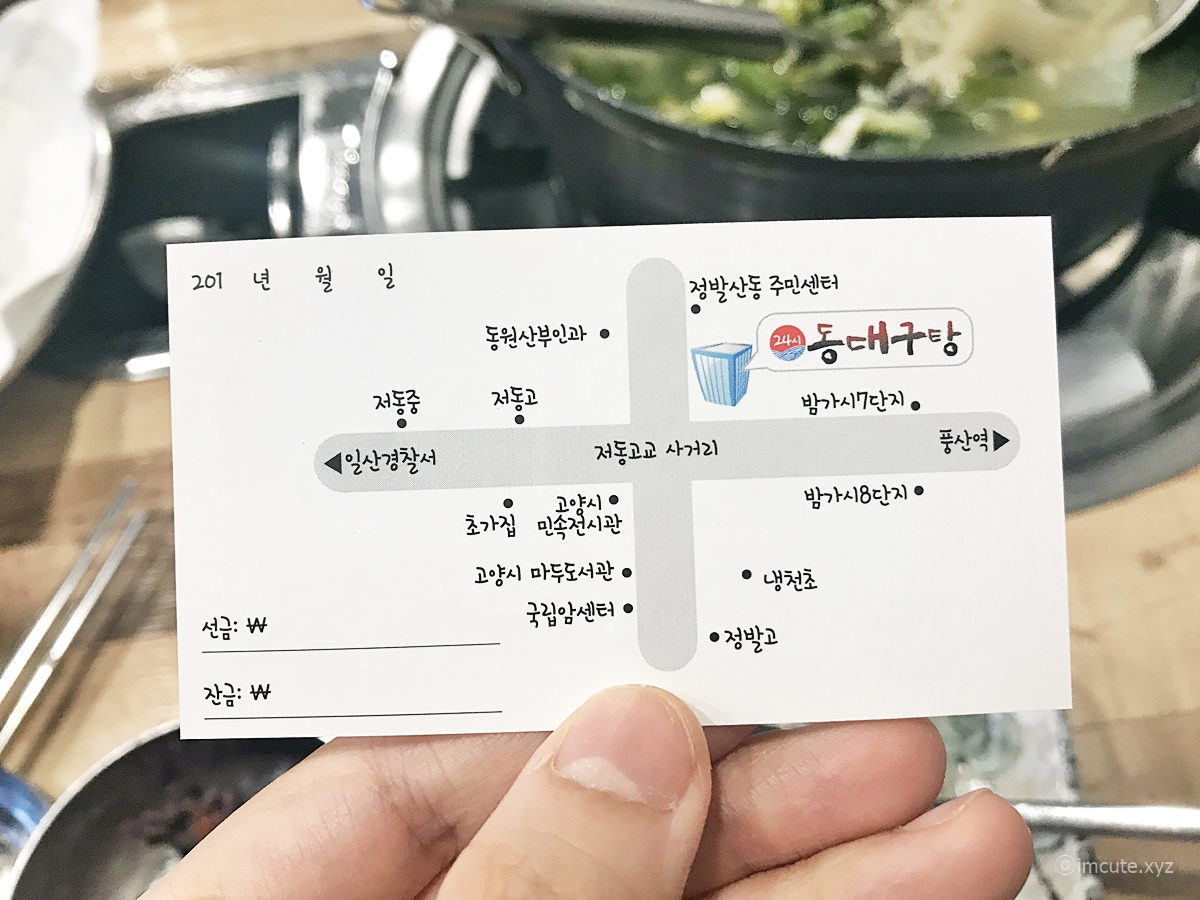 201 년 월 일
정발산동 주민센터
동원산부인과
24시 동대구탕
저동중
저동고
밤가시7단지
◀일산경찰서
저동고교 사거리
풍산역▶
초가집
고양시
민속전시관
밤가시8단지
고양시 마두도서관
냉천초
국립암센터
정발고
선금: ₩
잔금: ₩
©imcute.xyz